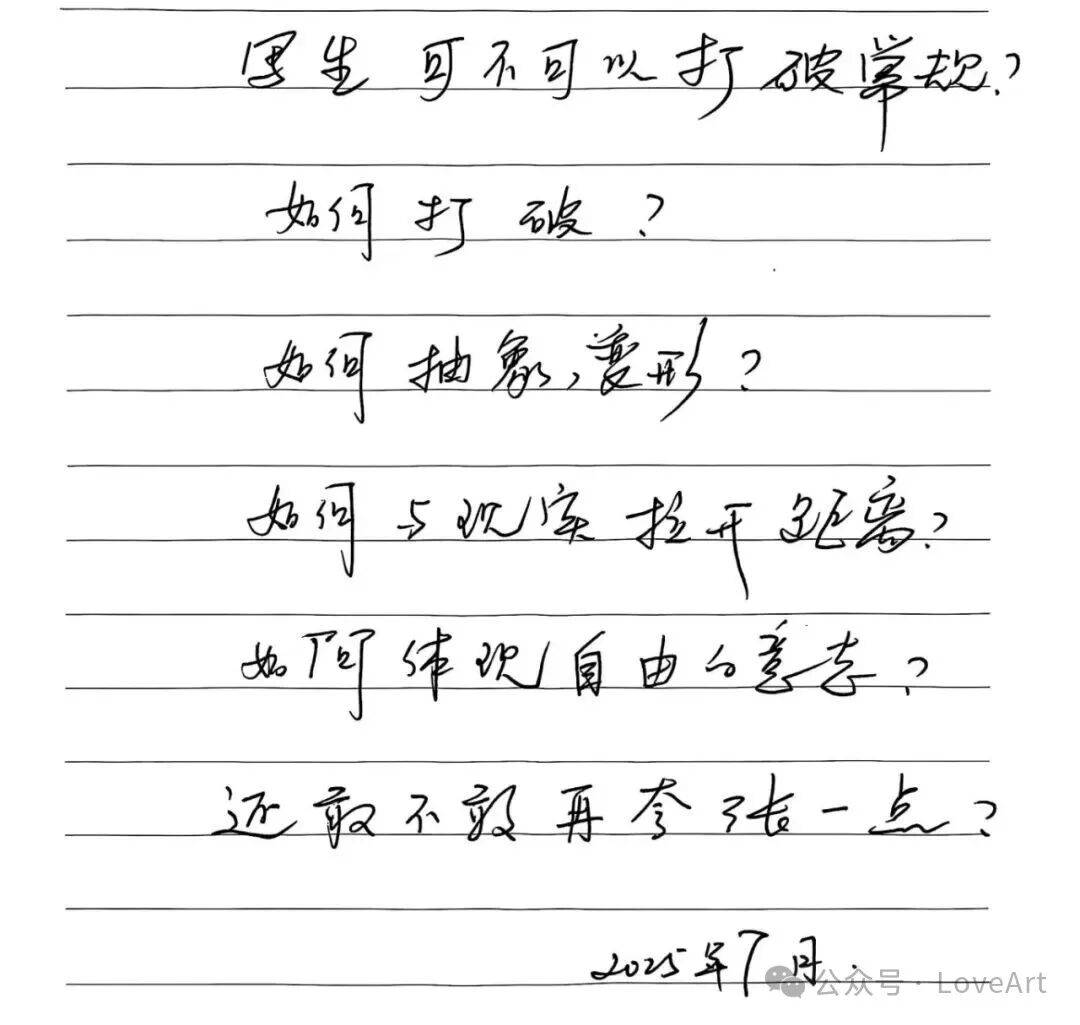 写生可不可以打破常规？
如何打破？
如何抽象，变形？
如何与现实拉开距离？
如何体现自由的意志？
还敢不敢再夸张一点？
2025年7月.
公众号 · LoveArt